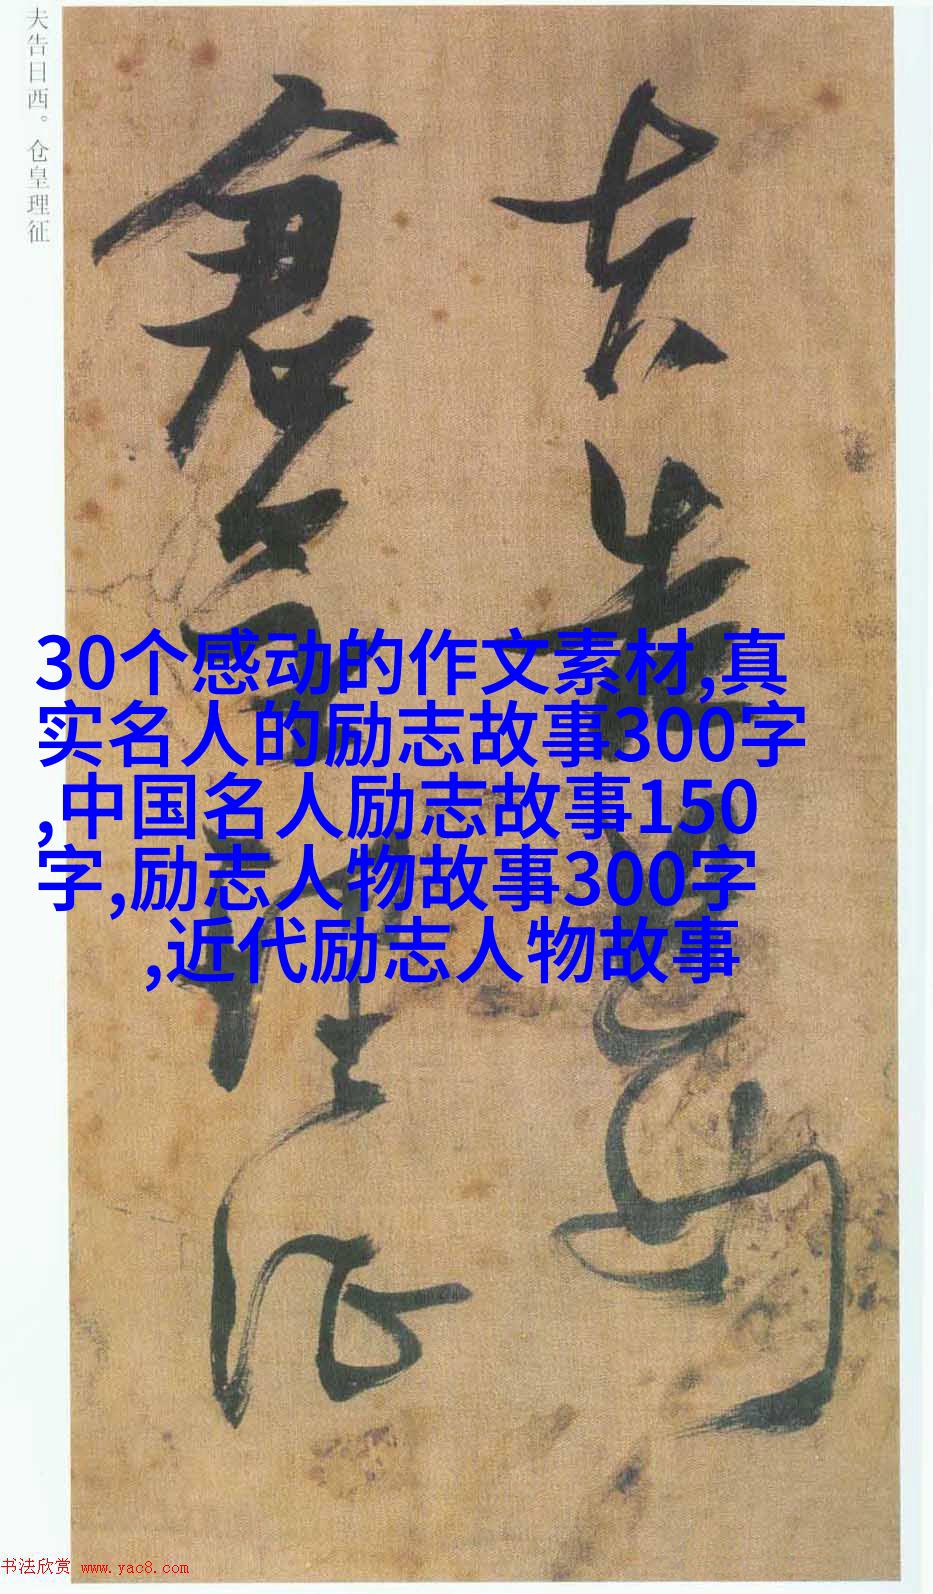 夫告日西。仓皇理征
夫告日西
倉皇理征
30个感动的作文素材,真
实名人的励志故事300字
,中国名人励志故事150
字,励志人物故事300字
,近代励志人物故事
书法欣赏 www.yac8.com